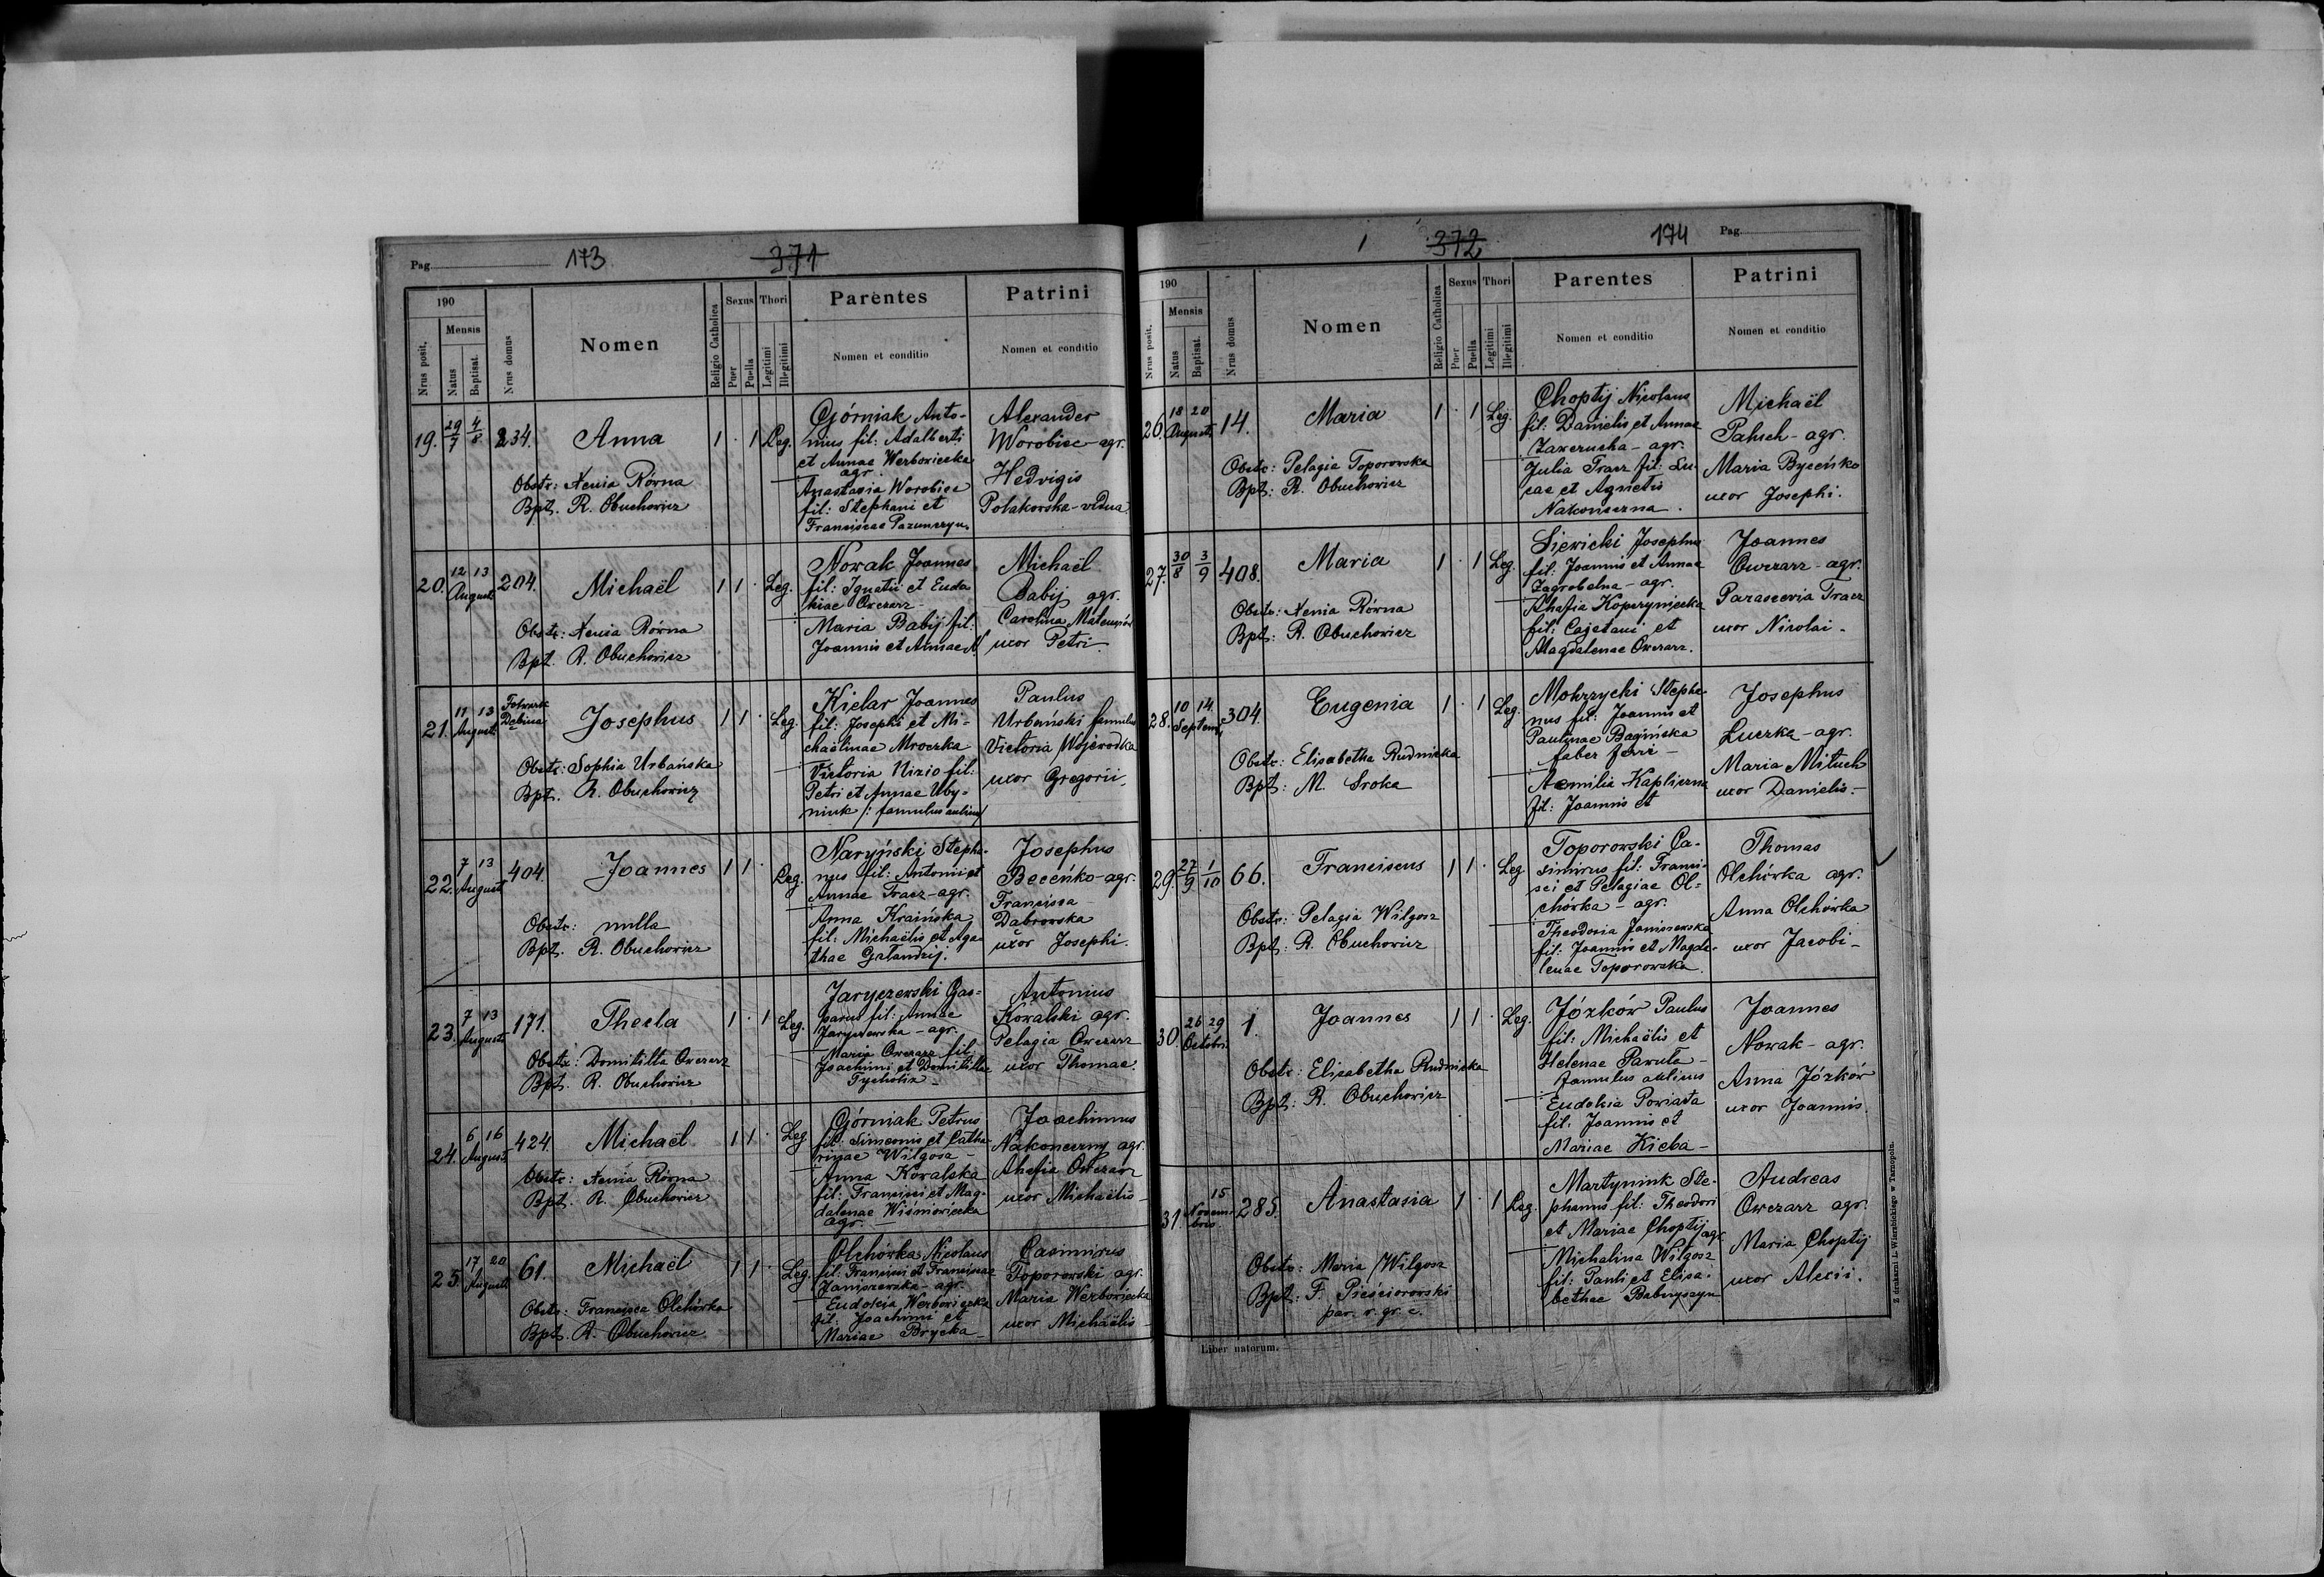 Pag. 173 371
190
Mensis
Nrus posit.
Natus
Baptisat.
Nrus domus
Nomen
Religio Catholica
Sexus
Puer
Puella
Thori
Legitimi
Illegitimi
Parentes
Nomen et conditio
Patrini
Nomen et conditio
19. 29/7 4/8 234. Anna 1 . 1 Leg.
Obstr: Xenia Równa
Bpt. R. Obuchowicz
Górniak Anto-
nius fil: Adalberti
et Annae Werbowiecka
agr.
Anastasia Worobiec
fil: Stephani et
Franciscae
Alexander
Worobiec - agr.
Hedvigis
Polakowska - vidua
20. 12 13 August. 204. Michaël 1 1 . Leg.
Obstr: Xenia Równa
Bpt. R. Obuchowicz
Nowak Joannes
fil: Ignatii et Eudo
kiae Owczarz -
Maria Babij fil:
Joannis et Annae N.
Michaël
Babij agr.
Carolina
uxor Petri -
21. 11 13 August. Folwark
Dębina Josephus 1 1 . Leg.
Obstr: Sophia Urbańska
Bpt. R. Obuchowicz
Kielar Joannes
fil: Josephi et Mi-
chaëlinae Mroczka
Victoria Nizio fil:
Petri et Annae Uby-
niuk /: famulus aulicus/
Paulus
Urbański famulus
Victoria Wojewodka
uxor Gregorii
22. 7 13 August. 404. Joannes 1 1 . Leg.
Obstr: nulla
Bpt. R. Obuchowicz
Naryński Stepha-
nus fil: Antonii et
Annae Tracz - agr.
Anna Kraińska
fil: Michaëlis et Aga-
thae Galandzij.
Josephus
Beceńko - agr.
Francisca
Dabrowska
uxor Josephi.
23. 7 13 August. 171. Thecla 1 . 1 Leg.
Obstr: Domitilla Owczarz
Bpt. R. Obuchowicz
Jaryczewski Gas-
parus fil: Annae
Jaryczewska - agr.
Maria Owczarz fil:
Joachimi et Domitillae
Antonius
Kowalski agr.
Pelagia Owczarz
uxor Thomae.
24. 6 16 August. 424. Michaël 1 1 . Leg.
Obstr: Xenia Równa
Bpt. R. Obuchowicz
Górniak Petrus
fil: Simeonis et Catha-
rinae Wilgosz -
Anna Kowalska
fil: Francisci et Mag-
dalenae Wiśniowiecka
agr. -
Joachimus
Nakoneczny agr.
Ahafia Owczarz
uxor Michaëlis -
25. 17 20 August. 61. Michaël 1 1 . Leg.
Obstr: Francisca Olchówka
Bpt. R. Obuchowicz
Olchówka Nicolaus
fil: Francisci et Franciscae
Janiszewska - agr.
Eudokia Werbowiecka
fil: Joachimi et
Mariae Brycka -
Casimirus
Toporowski agr.
Maria Werbowiecka
uxor Michaëlis
372 174 Pag.
190
Mensis
Nrus posit.
Natus
Baptisat.
Nrus domus
Nomen
Religio Catholica
Sexus
Puer
Puella
Thori
Legitimi
Illegitimi
Parentes
Nomen et conditio
Patrini
Nomen et conditio
26. 18 20 August. 14. Maria 1 . 1 Leg.
Obstr: Pelagia Toporowska
Bpt: R. Obuchowicz
Choptij Nicolaus
fil: Danielis et Annae
Zawerucha - agr.
Julia Tracz fil: Lu-
cae et Agnetis
Nakoneczna.
Michaël
Paluch - agr.
Maria Byceńko
uxor Josephi.
27. 30/8 3/9 408. Maria 1 . 1 Leg.
Obstr: Xenia Równa
Bpt: R. Obuchowicz
Siewicki Josephus
fil: Joannis et Annae
Zagrobelna - agr.
Ahafia Kopczyniecka
fil: Cajetani et
Magdalenae Owczarz.
Joannes
Owczarz - agr.
Parascevia Tracz
uxor Nicolai -
28. 10 14. Septem. 304. Eugenia 1 . 1 Leg.
Obstr: Elisabetha Rudnicka
Bpt: M. Sroka
Mokrzycki Stepha-
nus fil: Joannis et
Paulinae Bagińska
faber ferri -
Aemilia Kapliczna
fil: Joannis et
Josephus
Luczka - agr.
Maria Mituch
uxor Danielis -
29. 27/9 1/10 66. Franciscus 1 1 . Leg
Obstr: Pelagia Wilgosz
Bpt: R. Obuchowicz
Toporowski Ca-
simirus fil: Franci-
sci et Pelagiae Ol-
chówka - agr.
Theodosia Janiszewska
fil: Joannis et Magda-
lenae Toporowska.
Thomas
Olchówka agr.
Anna Olchówka
uxor Jacobi -
30. 26 29 Octobri. 1. Joannes 1 1 . Leg.
Obstr: Elisabetha Rudnicka
Bpt: R. Obuchowicz
Józków Paulus
fil: Michaëlis et
Helenae Pawuta -
famulus aulicus
Eudokia Powiata
fil: Joannis et
Mariae Kieba -
Joannes
Nowak - agr.
Anna Józków
uxor Joannis.
31. 15 Novem-
bris 285. Anastasia 1 . 1 Leg.
Obstr: Maria Wilgosz
Bpt: F. Pieściorowski
par. r. gr. c.
Martyniuk Ste-
phanus fil: Theodori
et Mariae Choptij agr.
Michalina Wilgosz
fil: Pauli et Elisa-
bethae Babuyszyn
Andreas
Owczarz agr.
Maria Choptij
uxor Alexii.
Liber natorum.
Z drukarni L. Wierzbickiego w Tarnopolu.